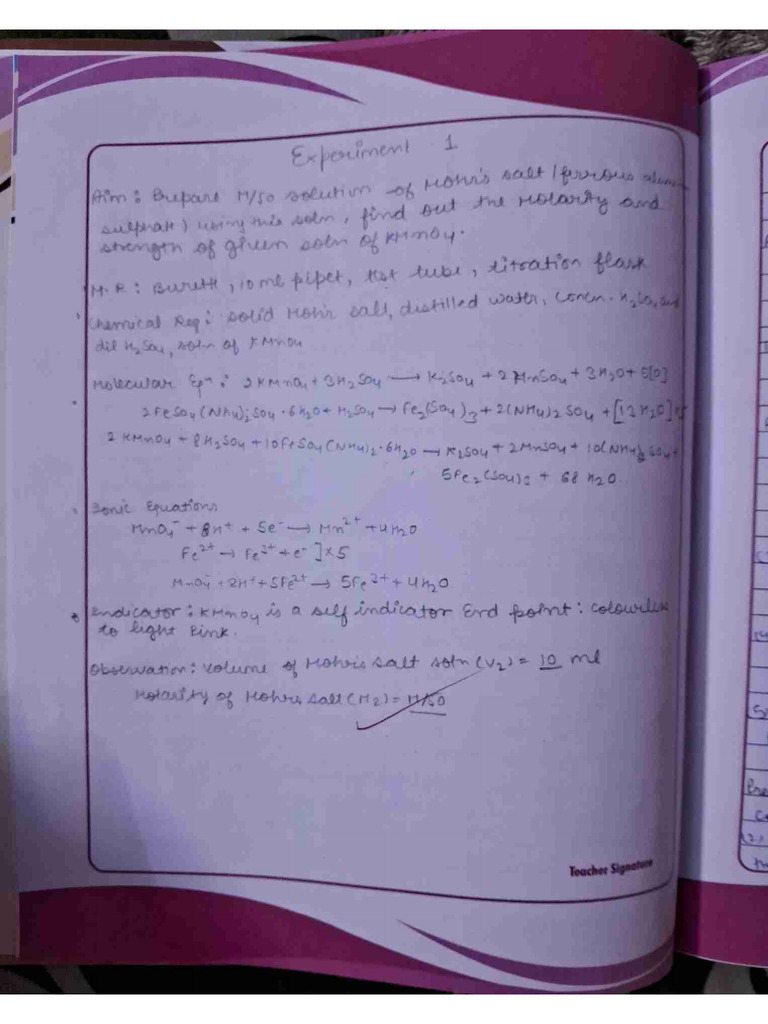 Experiment 1
Aim: Prepare M/50 solution of Mohr's salt (ferrous
sulphate) using this soln, find out the Molarity and
strength of given soln of KMnO4.
M.R: Burett, 10 ml pipet, test tube, titration flask
Chemical Req: solid Mohr salt, distilled water, concn. H2SO4 and
dil H2SO4, soln of KMnO4
Molecular Eqn: 2KMnO4 + 3H2SO4 → K2SO4 + 2MnSO4 + 3H2O + 5[O]
2FeSO4(NH4)2SO4·6H2O + H2SO4 → Fe2(SO4)3 + 2(NH4)2SO4 + [13H2O] × 5
2KMnO4 + 8H2SO4 + 10FeSO4(NH4)2·6H2O → K2SO4 + 2MnSO4 + 10(NH4)2SO4 +
5Fe2(SO4)3 + 68H2O.
Ionic Equations
MnO4⁻ + 8H⁺ + 5e⁻ → Mn²⁺ + 4H2O
Fe²⁺ → Fe³⁺ + e⁻] × 5
MnO4⁻ + 2H⁺ + 5Fe²⁺ → 5Fe³⁺ + 4H2O
Indicator: KMnO4 is a self indicator End point: colourless
to light Pink.
Observation: Volume of Mohris salt soln (V2) = 10 ml
Molarity of Mohris salt (M2) = M/50
Teacher Signature